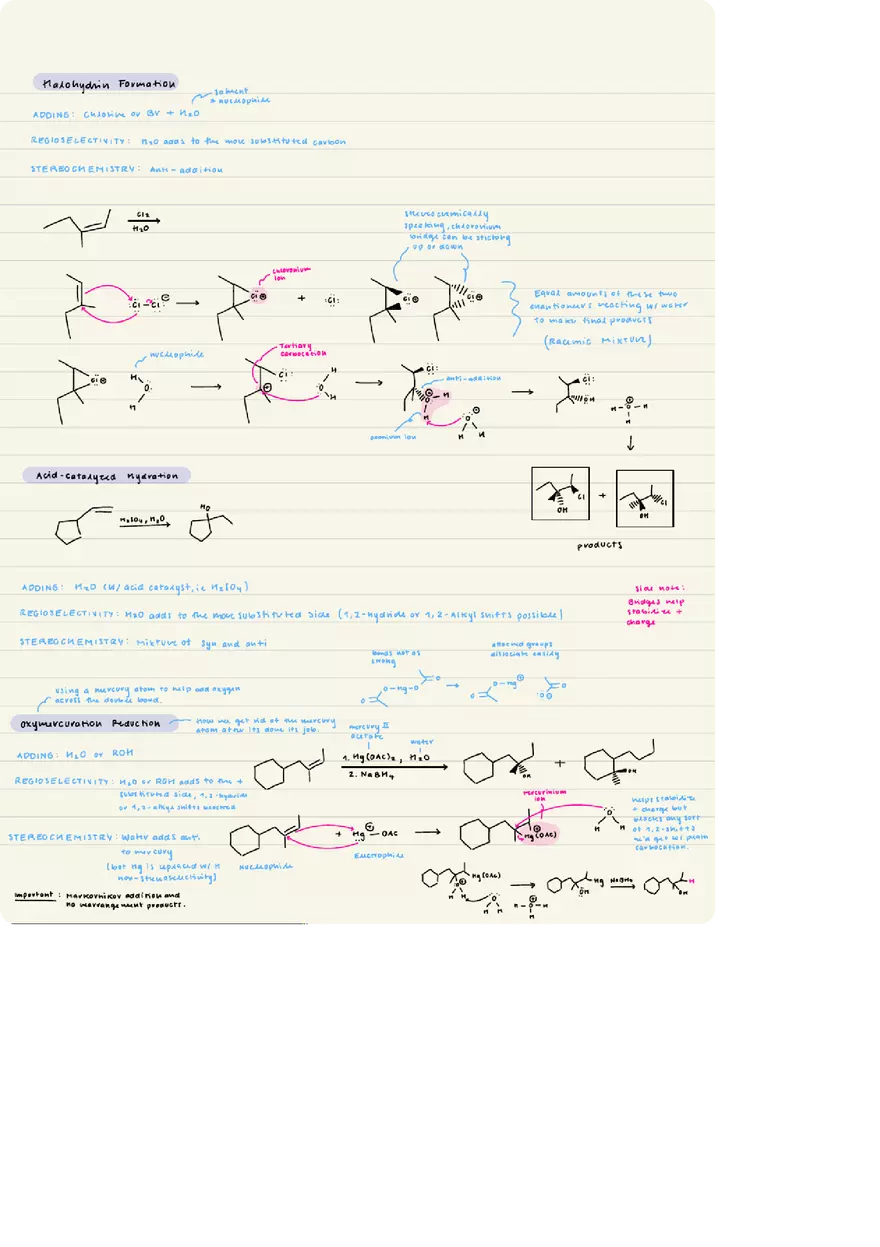 Halohydrin Formation
solvent
& nucleophile
ADDING: Chlorine or Br + H₂O
REGIOSELECTIVITY: H₂O adds to the more substituted carbon
STEREOCHEMISTRY: Anti-addition
Cl₂
H₂O
stereochemically
speaking, chloronium
bridge can be sticking
up or down
chloronium
ion
Cl–Cl
Cl ⊕
+
:Cl:
Cl ⊕
Cl ⊕
Equal amounts of these two
enantiomers reacting w/ water
to make final products
(Racemic Mixture)
nucleophile
Tertiary
carbocation
anti-addition
Cl ⊕
H
O
H
Cl:
⊕
H
O
H
Cl:
O – H
H
O
H H
Cl:
OH
H – O – H
H
oxonium ion
Acid-Catalyzed Hydration
H₂SO₄, H₂O
HO
Cl
OH
+
Cl
OH
products
ADDING: H₂O (w/ acid catalyst, ie H₂SO₄)
REGIOSELECTIVITY: H₂O adds to the more substituted side (1,2-Hydride or 1,2-Alkyl shifts possible)
STEREOCHEMISTRY: Mixture of syn and anti
Side note:
Bridges help
stabilize +
charge
bonds not as
strong
attached groups
dissociate easily
O–Hg–O
O
O
O–Hg ⊕
O
O
:O ⊖
using a mercury atom to help add oxygen
across the double bond.
Oxymercuration Reduction
How we get rid of the mercury
atom after its done its job.
mercury II
acetate
water
ADDING: H₂O or ROH
1. Hg(OAc)₂, H₂O
2. NaBH₄
OH
+
OH
REGIOSELECTIVITY: H₂O or ROH adds to the +
substituted side, 1,2-hydride
or 1,2-alkyl shifts blocked
mercurinium
ion
STEREOCHEMISTRY: Water adds anti
to mercury
(but Hg is replaced w/ H
non-stereoselectivity)
Nucleophile
+
Hg – OAc
Electrophile
Hg(OAc)
O
H H
helps stabilize
+ charge but
blocks any sort
of 1,2-shifts
we'd get w/ plain
carbocation.
Important: Markovnikov addition and
no rearrangement products.
Hg(OAc)
O
H H
O
H H
H – O – H
H
Hg
OH
NaBH₄
H
OH